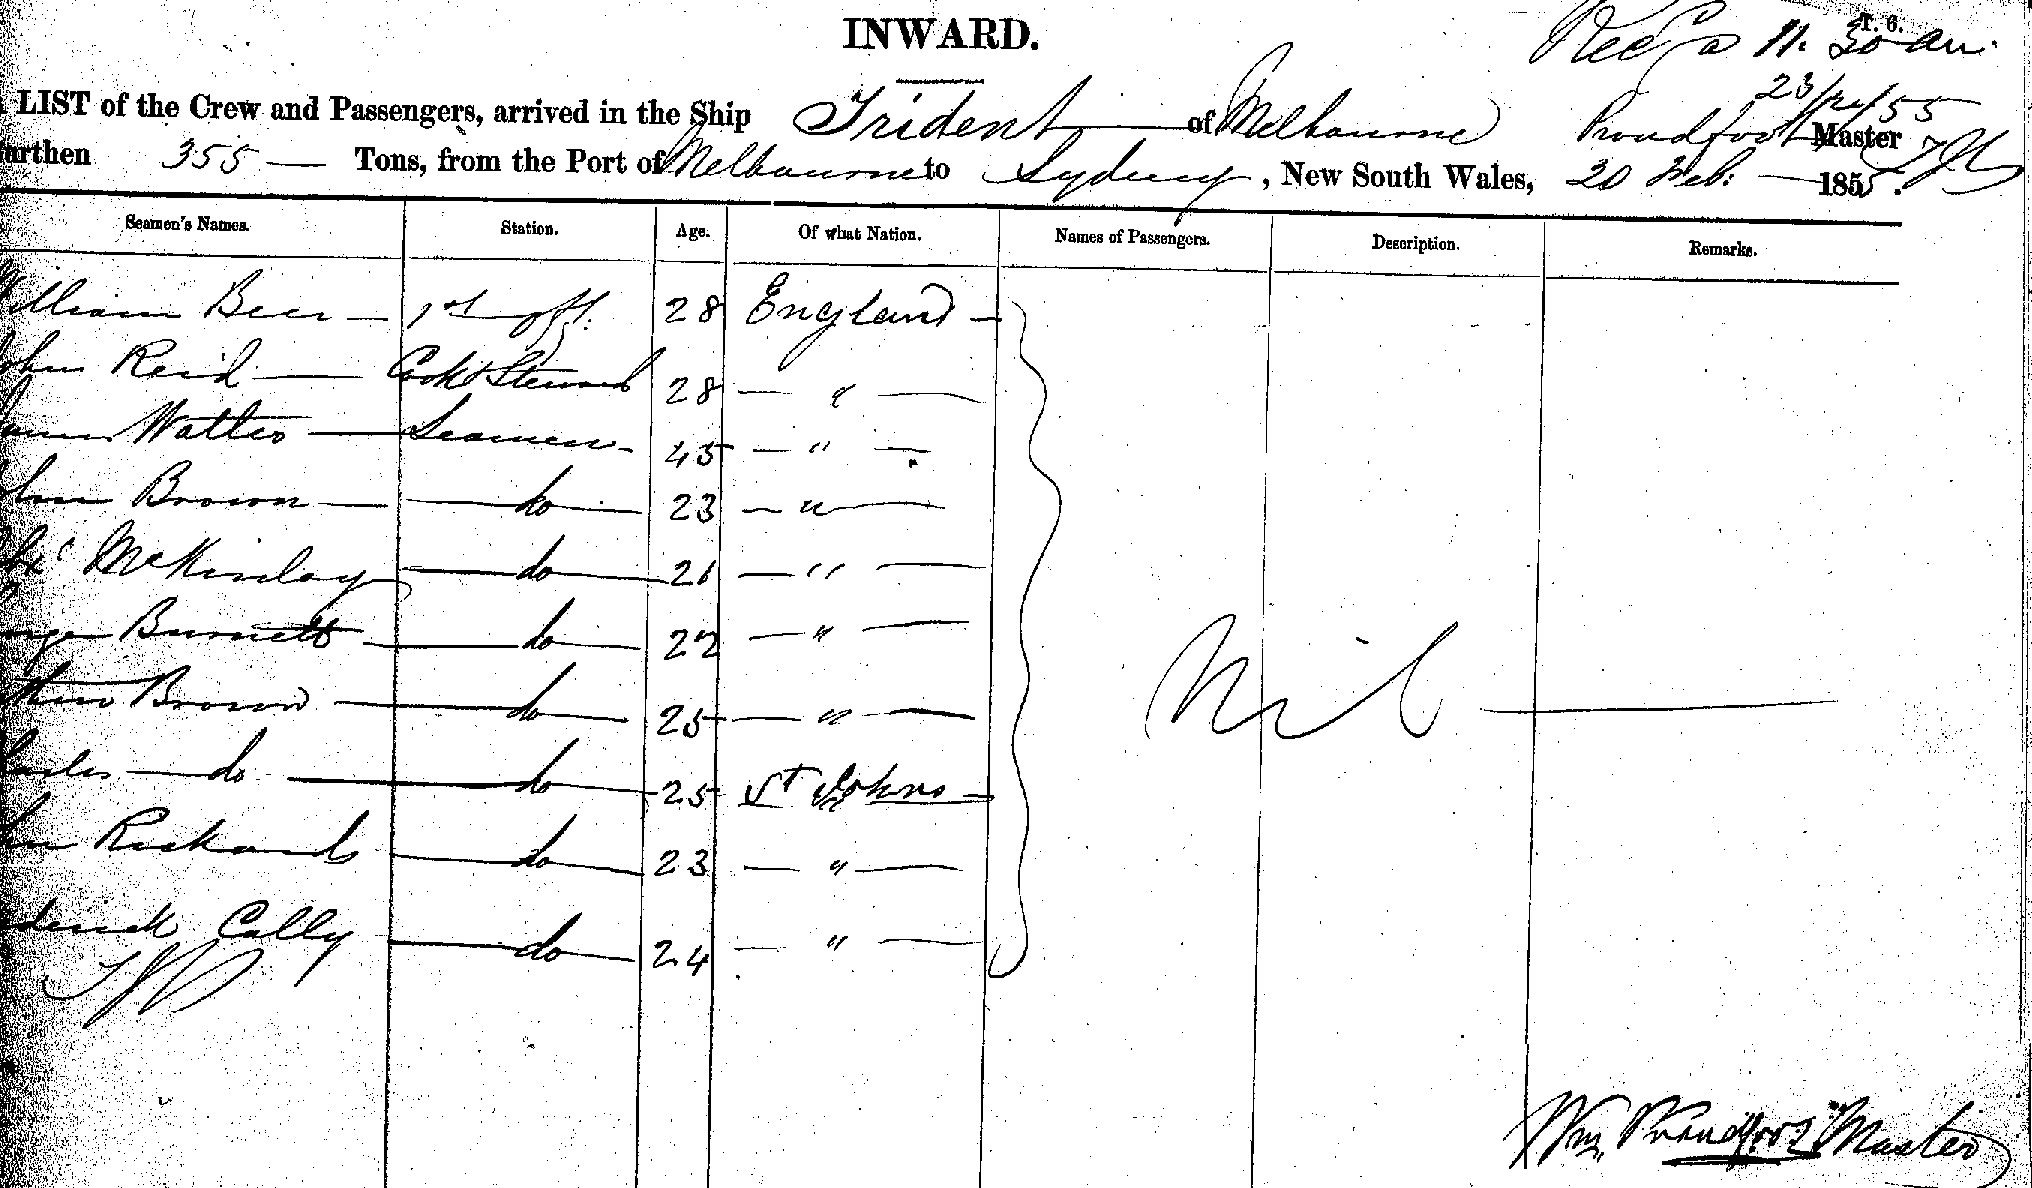 INWARD.
T. 6.
Rec 11. 30 am.
23/2/55
LIST of the Crew and Passengers, arrived in the Ship Trident of Melbourne Proudfoot Master
urthen 355 Tons, from the Port of Melbourne to Sydney, New South Wales, 20 Feb: 1855.
Seamen's Names. Station. Age. Of what Nation. Names of Passengers. Description. Remarks.
William Beer 1st off. 28 England
John Reid Cook & Steward 28 "
Watters Seamen 45 "
John Brown do 23 "
Alexr McKinlay do 26 "
George Burnett do 22 "
Brown do 25 "
Charles do do 25 St Johns
John Richards do 23 "
ederick Cally do 24 "
Nil
Wm Proudfoot Master